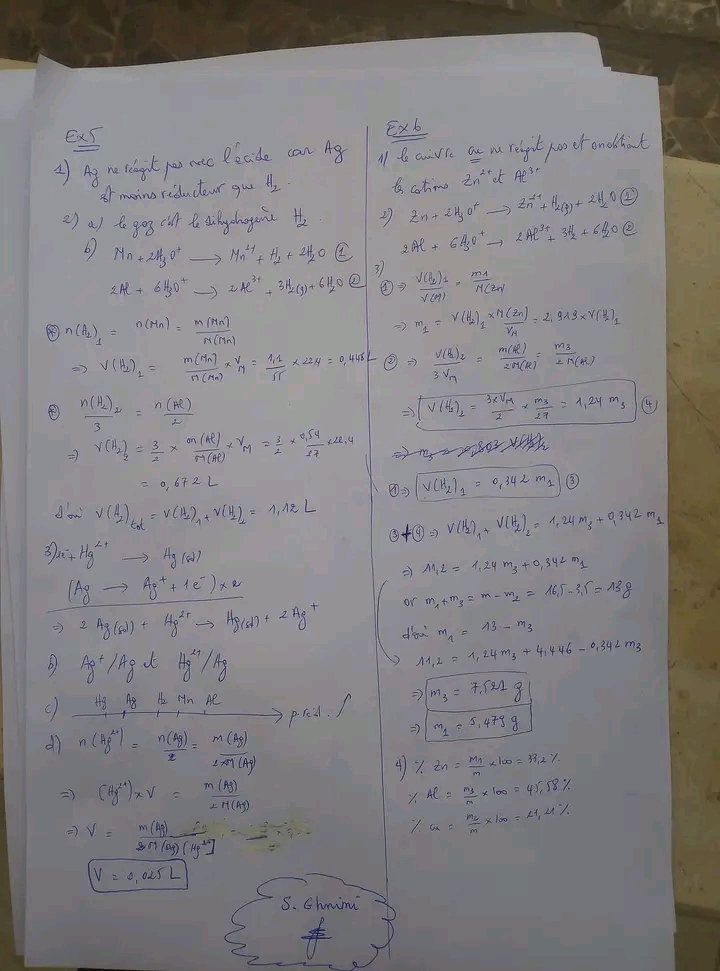 Ex 5
1) Ag ne réagit pas avec l'écide car Ag
est moins réducteur que H₂.
2) a) le gaz c'est le dihydrogène H₂.
b) Mn + 2H₃O⁺ → Mn²⁺ + H₂ + 2H₂O ①
2Al + 6H₃O⁺ → 2Al³⁺ + 3H₂(g) + 6H₂O ②
n(H₂)₁ = n(Mn) = m(Mn)/M(Mn)
⇒ V(H₂)₁ = m(Mn)/M(Mn) × V_M = 1,1/55 × 22,4 = 0,448 L
n(H₂)₂/3 = n(Al)/2
⇒ V(H₂)₂ = 3/2 × m(Al)/M(Al) × V_M = 3/2 × 0,54/27 × 22,4
= 0,672 L
d'où V(H₂)tot = V(H₂)₁ + V(H₂)₂ = 1,12 L
3) 2e⁻ + Hg²⁺ → Hg(sd)
(Ag → Ag⁺ + 1e⁻) × 2
⇒ 2 Ag(sd) + Hg²⁺ → Hg(sd) + 2 Ag⁺
b) Ag⁺/Ag et Hg²⁺/Ag
c) Hg Ag H₂ Mn Al
p. réd.
d) n(Ag²⁺) = n(Ag)/2 = m(Ag)/2×M(Ag)
⇒ [Hg²⁺] × V = m(Ag)/2M(Ag)
⇒ V = m(Ag)/2M(Ag)[Hg²⁺]
V = 0,025 L
Ex 6
1/ le cuivre cu ne réagit pas et on obtient
les cations Zn²⁺ et Al³⁺
2) Zn + 2H₃O⁺ → Zn²⁺ + H₂(g) + 2H₂O ①
2Al + 6H₃O⁺ → 2Al³⁺ + 3H₂ + 6H₂O ②
3)
① ⇒ V(H₂)₁/V(M) = m₁/M(Zn)
⇒ m₁ = V(H₂)₁ × M(Zn)/V_M = 2,919 × V(H₂)₁
② ⇒ V(H₂)₂/3V_M = m(Al)/2M(Al) = m₃/2M(Al)
⇒ V(H₂)₂ = 3×V_M/2 × m₃/27 = 1,24 m₃ ④
① ⇒ V(H₂)₁ = 0,342 m₁ ③
③ + ④ ⇒ V(H₂)₁ + V(H₂)₂ = 1,24 m₃ + 0,342 m₁
⇒ 11,2 = 1,24 m₃ + 0,342 m₁
or m₁ + m₃ = m - m₂ = 16,5 - 3,5 = 13 g
d'où m₁ = 13 - m₃
11,2 = 1,24 m₃ + 4,446 - 0,342 m₃
⇒ m₃ = 7,521 g
⇒ m₁ = 5,479 g
4) % Zn = m₁/m × 100 = 33,2 %
% Al = m₃/m × 100 = 45,58 %
% cu = m₂/m × 100 = 21,21 %
S. Ghnimi